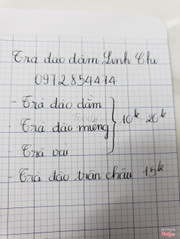 Trà đào dầm Linh Chi
0972854414
- Trà đào dầm
Trà đào miếng } 10k 20k
Trà vải
- Trà đào trân châu 15k